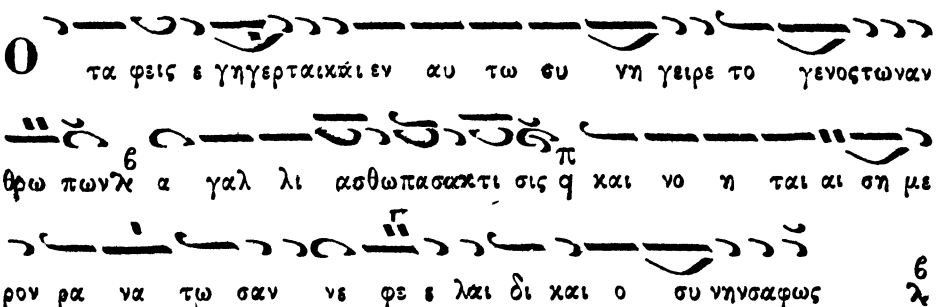 Ο τα φεις ε γηγερται και εν αυ τω συ νη γειρε το γενος των αν
θρω πων α γαλ λι ασθω πασα κτι σις και νο η ται αι ση με
ρον ρα να τω σαν νε φε ε λαι δι και ο συ νην σαφως